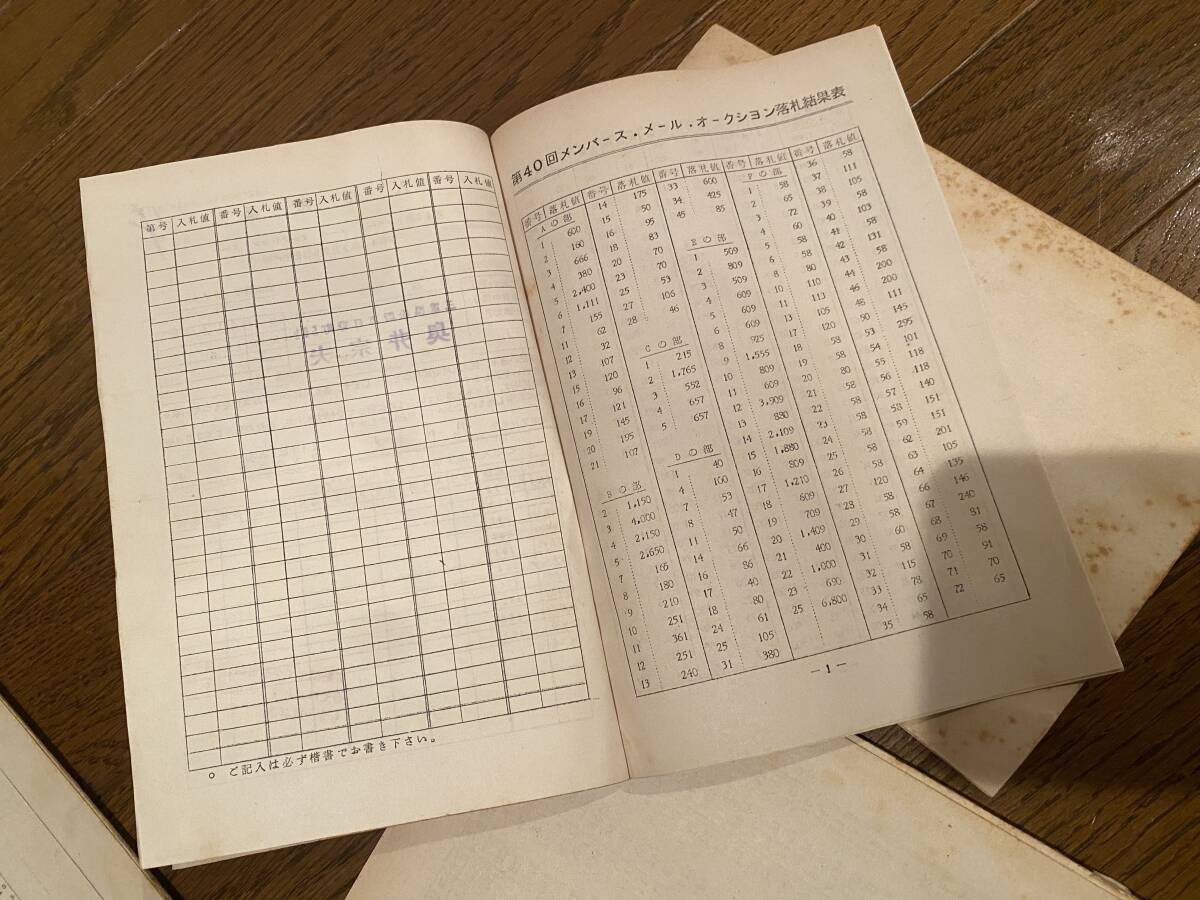 第号 入札値 番号 入札値 番号 入札値 番号 入札値 番号 入札値
○ ご記入は必ず楷書でお書き下さい。
第40回メンバース・メール・オークション落札結果表
番号 落札値 番号 落札値 番号 落札値 番号 落札値 番号 落札値
Aの部
1 600
2 160
3 666
4 380
5 2,400
6 1,111
7 155
11 62
12 32
13 107
15 120
16 96
17 121
19 145
20 195
21 107
Bの部
2 1,150
3 4,000
4 2,150
5 2,650
7 165
8 180
9 210
10 251
11 361
12 251
13 240
14 175
15 50
16 95
18 83
20 70
23 70
25 53
27 106
28 46
Cの部
1 215
2 1,765
3 552
4 657
5 657
Dの部
1 40
4 100
7 53
8 47
11 50
14 66
16 86
17 40
18 80
24 61
25 105
31 380
33 600
34 425
45 85
Eの部
1 509
2 809
3 509
4 609
5 609
6 609
8 925
9 1,555
10 809
11 609
12 3,909
13 880
14 2,109
15 1,880
16 809
17 1,210
18 609
19 709
20 1,409
21 400
22 1,000
23 690
25 6,800
Fの部
1 58
2 65
3 72
4 60
5 58
6 58
8 80
10 110
11 113
13 105
17 120
18 58
19 58
20 80
21 58
22 58
23 58
24 58
25 58
26 58
27 120
28 58
29 58
30 60
31 58
32 115
33 78
34 65
35 58
36 58
37 111
38 105
39 58
40 103
41 58
42 131
43 58
44 200
46 200
48 111
50 145
53 295
54 101
55 118
56 118
57 140
58 151
59 151
62 201
63 105
64 135
66 146
67 240
68 81
69 58
70 91
71 70
72 65
－1－